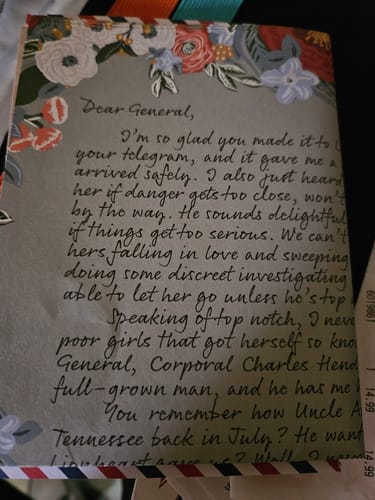 Dear General,
I'm so glad you made it to
your telegram, and it gave me a
arrived safely. I also just heard
her if danger gets too close, won't
by the way. He sounds delightful
if things get too serious. We can't
hers falling in love and sweeping
doing some discreet investigating
able to let her go unless he's top
Speaking of top notch, I neve
poor girls that got herself so kno
General, Corporal Charles Hend
full-grown man, and he has me
You remember how Uncle A
Tennessee back in July? He want
Lionheart
6019861
1
14.99
14.99